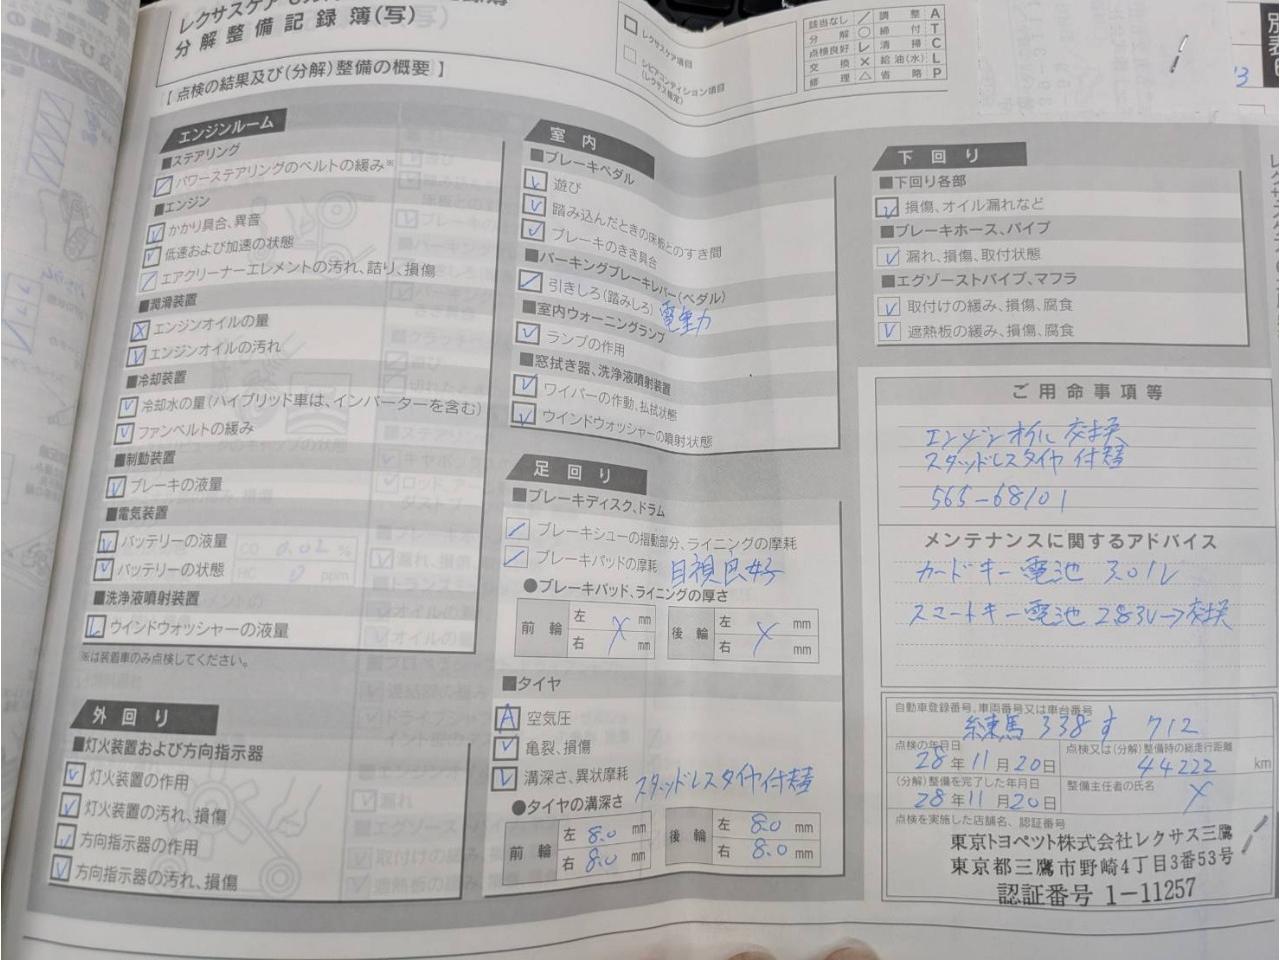 分解整備記録簿(写)
【 点検の結果及び(分解)整備の概要 】
レクサスケア項目
該当なし / 調 整 A
分 解 ○ 締 付 T
点検良好 レ 清 掃 C
交 換 × 給油(水) L
修 理 △ 省 略 P
エンジンルーム
■ステアリング
パワーステアリングのベルトの緩み※
■エンジン
かかり具合、異音
低速および加速の状態
エアクリーナーエレメントの汚れ、詰り、損傷
■潤滑装置
エンジンオイルの量
エンジンオイルの汚れ
■冷却装置
冷却水の量(ハイブリッド車は、インバーターを含む)
ファンベルトの緩み
■制動装置
ブレーキの液量
■電気装置
バッテリーの液量
バッテリーの状態
■洗浄液噴射装置
L ウインドウォッシャーの液量
※は装着車のみ点検してください。
外回り
■灯火装置および方向指示器
灯火装置の作用
灯火装置の汚れ、損傷
方向指示器の作用
方向指示器の汚れ、損傷
室内
■ブレーキペダル
遊び
踏み込んだときの床板とのすき間
ブレーキのきき具合
■パーキングブレーキレバー(ペダル)
引きしろ(踏みしろ) 電動
■室内ウォーニングランプ
ランプの作用
■窓拭き器、洗浄液噴射装置
ワイパーの作動、払拭状態
ウインドウォッシャーの噴射状態
足回り
■ブレーキディスク、ドラム
ブレーキシューの摺動部分、ライニングの摩耗
ブレーキパッドの摩耗 目視良好
●ブレーキパッド、ライニングの厚さ
前輪 左 mm 後輪 左 mm
右 mm 右 mm
■タイヤ
A 空気圧
亀裂、損傷
溝深さ、異状摩耗 スタッドレスタイヤ付替
●タイヤの溝深さ
前輪 左 8.0 mm 後輪 左 8.0 mm
右 8.0 mm 右 8.0 mm
下回り
■下回り各部
損傷、オイル漏れなど
■ブレーキホース、パイプ
漏れ、損傷、取付状態
■エグゾーストパイプ、マフラ
取付けの緩み、損傷、腐食
遮熱板の緩み、損傷、腐食
ご用命事項等
エンジンオイル交換
スタッドレスタイヤ付替
565-68101
メンテナンスに関するアドバイス
カードキー電池 3.01V
スマートキー電池 2.83V→交換
自動車登録番号、車両番号又は車台番号
練馬 338 す 712
点検の年月日 点検又は(分解)整備時の総走行距離
28年11月20日 44222 km
(分解)整備を完了した年月日 整備主任者の氏名
28年11月20日
点検を実施した店舗名、認証番号
東京トヨペット株式会社レクサス三鷹
東京都三鷹市野崎4丁目3番53号
認証番号 1-11257